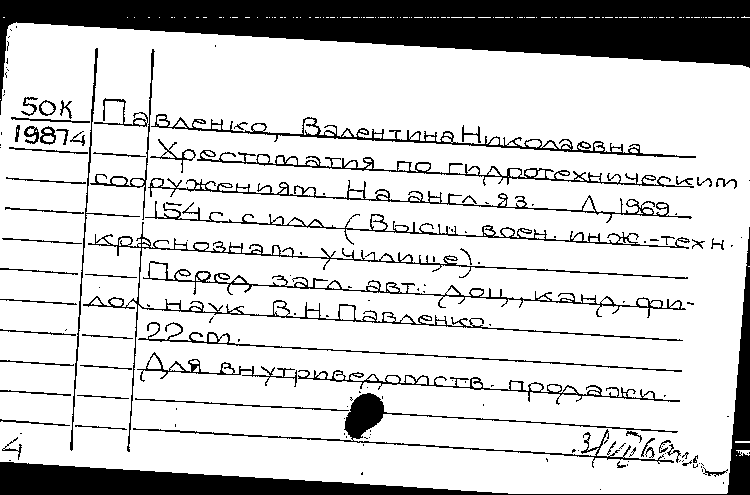 50К Павленко, Валентина Николаевна
19874
Хрестоматия по гидротехническим
сооружениям. На англ. яз. Л., 1969.
154 с. с илл. (Высш. воен. инж.-техн.
краснознам. училище).
Перед загл. авт.: доц., канд. фи-
лол. наук В.Н. Павленко.
22 см.
Для внутриведомств. продажи.
3/VII 69
4